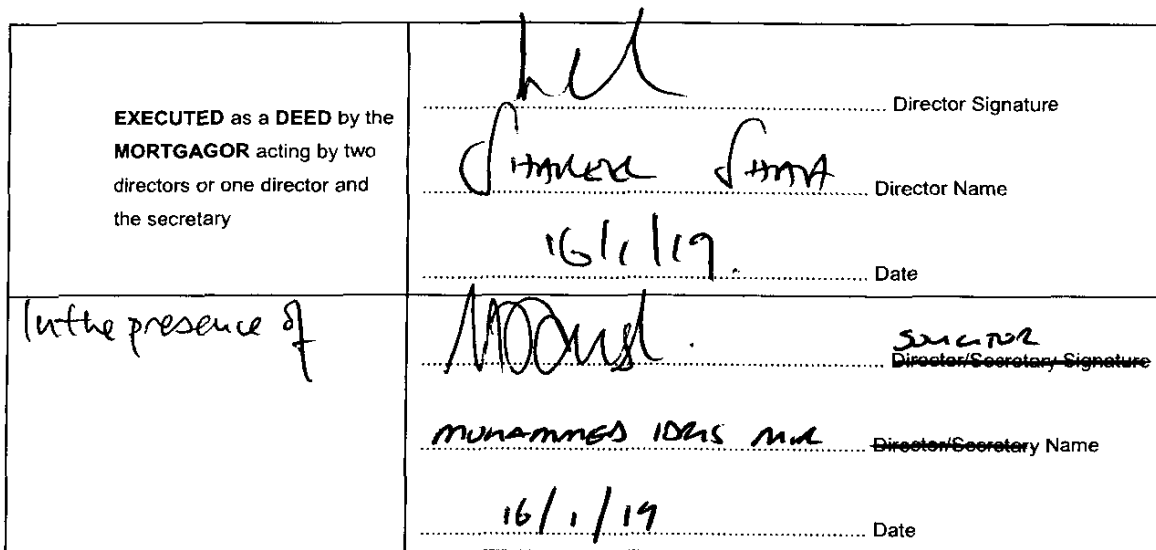 EXECUTED as a DEED by the
MORTGAGOR acting by two
directors or one director and
the secretary
Director Signature
Director Name
16/1/19.
Date
In the presence of
SOLICITOR
Director/Secretary Signature
MUHAMMED IDRIS MIR
Director/Secretary Name
16/1/19
Date